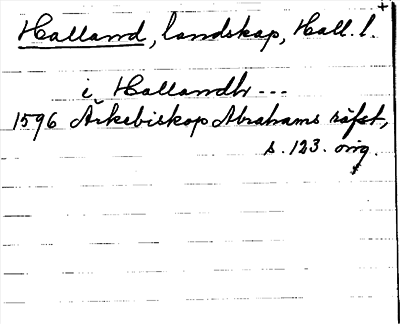 Halland, landskap, Hall. l.
i Hallandh ---
1596 Ärkebiskop Abrahams räfst,
s. 123. orig.